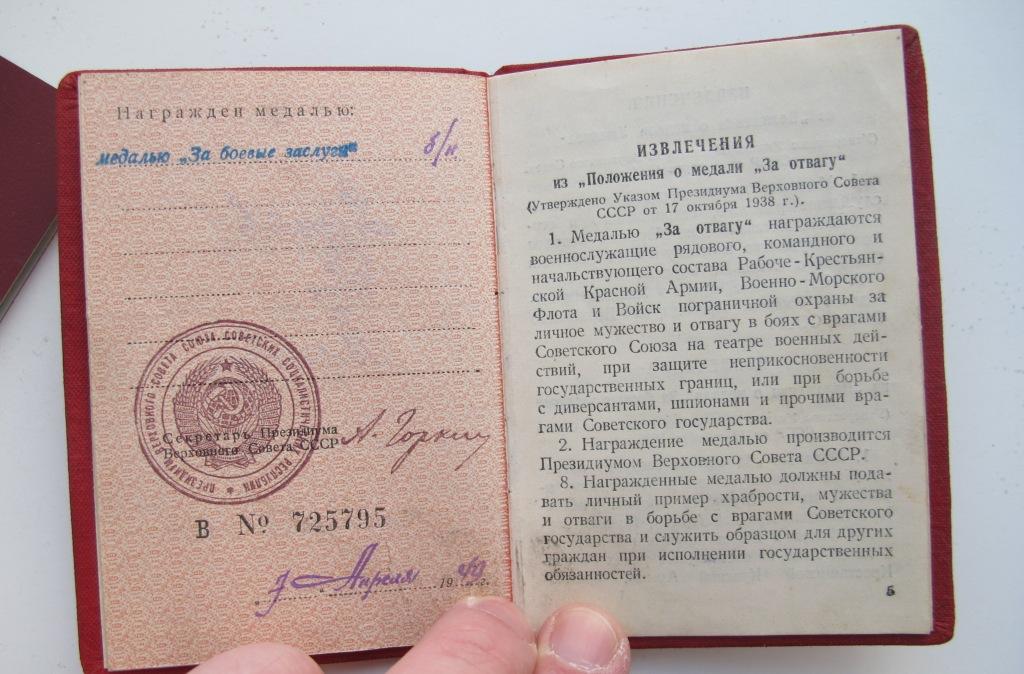 Награжден медалью:
медалью „За боевые заслуги“ б/н
ПРЕЗИДИУМ ВЕРХОВНОГО СОВЕТА СОЮЗА СОВЕТСКИХ СОЦИАЛИСТИЧ. РЕСПУБЛИК
Секретарь Президиума
Верховного Совета СССР А. Горкин
В № 725795
7 Апреля 19 г.
ИЗВЛЕЧЕНИЯ
из „Положения о медали „За отвагу“
(Утверждено Указом Президиума Верховного Совета
СССР от 17 октября 1938 г.).
1. Медалью „За отвагу“ награждаются
военнослужащие рядового, командного и
начальствующего состава Рабоче-Крестьян-
ской Красной Армии, Военно-Морского
Флота и Войск пограничной охраны за
личное мужество и отвагу в боях с врагами
Советского Союза на театре военных дей-
ствий, при защите неприкосновенности
государственных границ, или при борьбе
с диверсантами, шпионами и прочими вра-
гами Советского государства.
2. Награждение медалью производится
Президиумом Верховного Совета СССР.
8. Награжденные медалью должны пода-
вать личный пример храбрости, мужества
и отваги в борьбе с врагами Советского
государства и служить образцом для других
граждан при исполнении государственных
обязанностей.
5